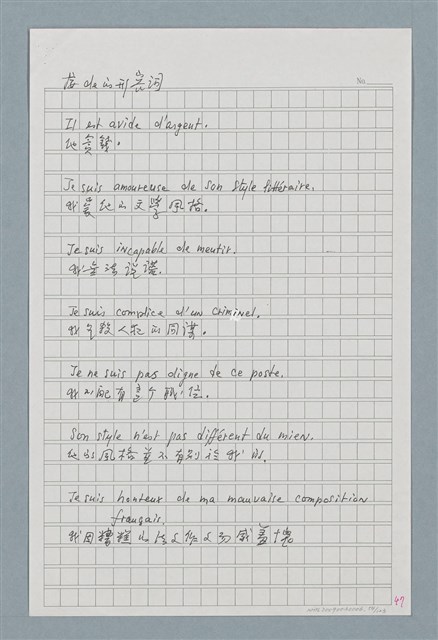 接 de 的形容詞
No.
Il est avide d'argent.
他貪錢。
Je suis amoureuse de son style littéraire.
我愛他的文學風格。
Je suis incapable de mentir.
我無法說謊.
Je suis complice d'un criminel.
我是殺人犯的同謀。
Je ne suis pas digne de ce poste.
我不配有這個職位.
Son style n'est pas différent du mien.
他的風格並不有別於我的.
Je suis honteux de ma mauvaise composition
français.
我因糟糕的法文作文而感羞愧
47